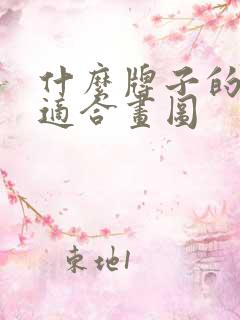 什麼牌子的
適合畫圖
東地1